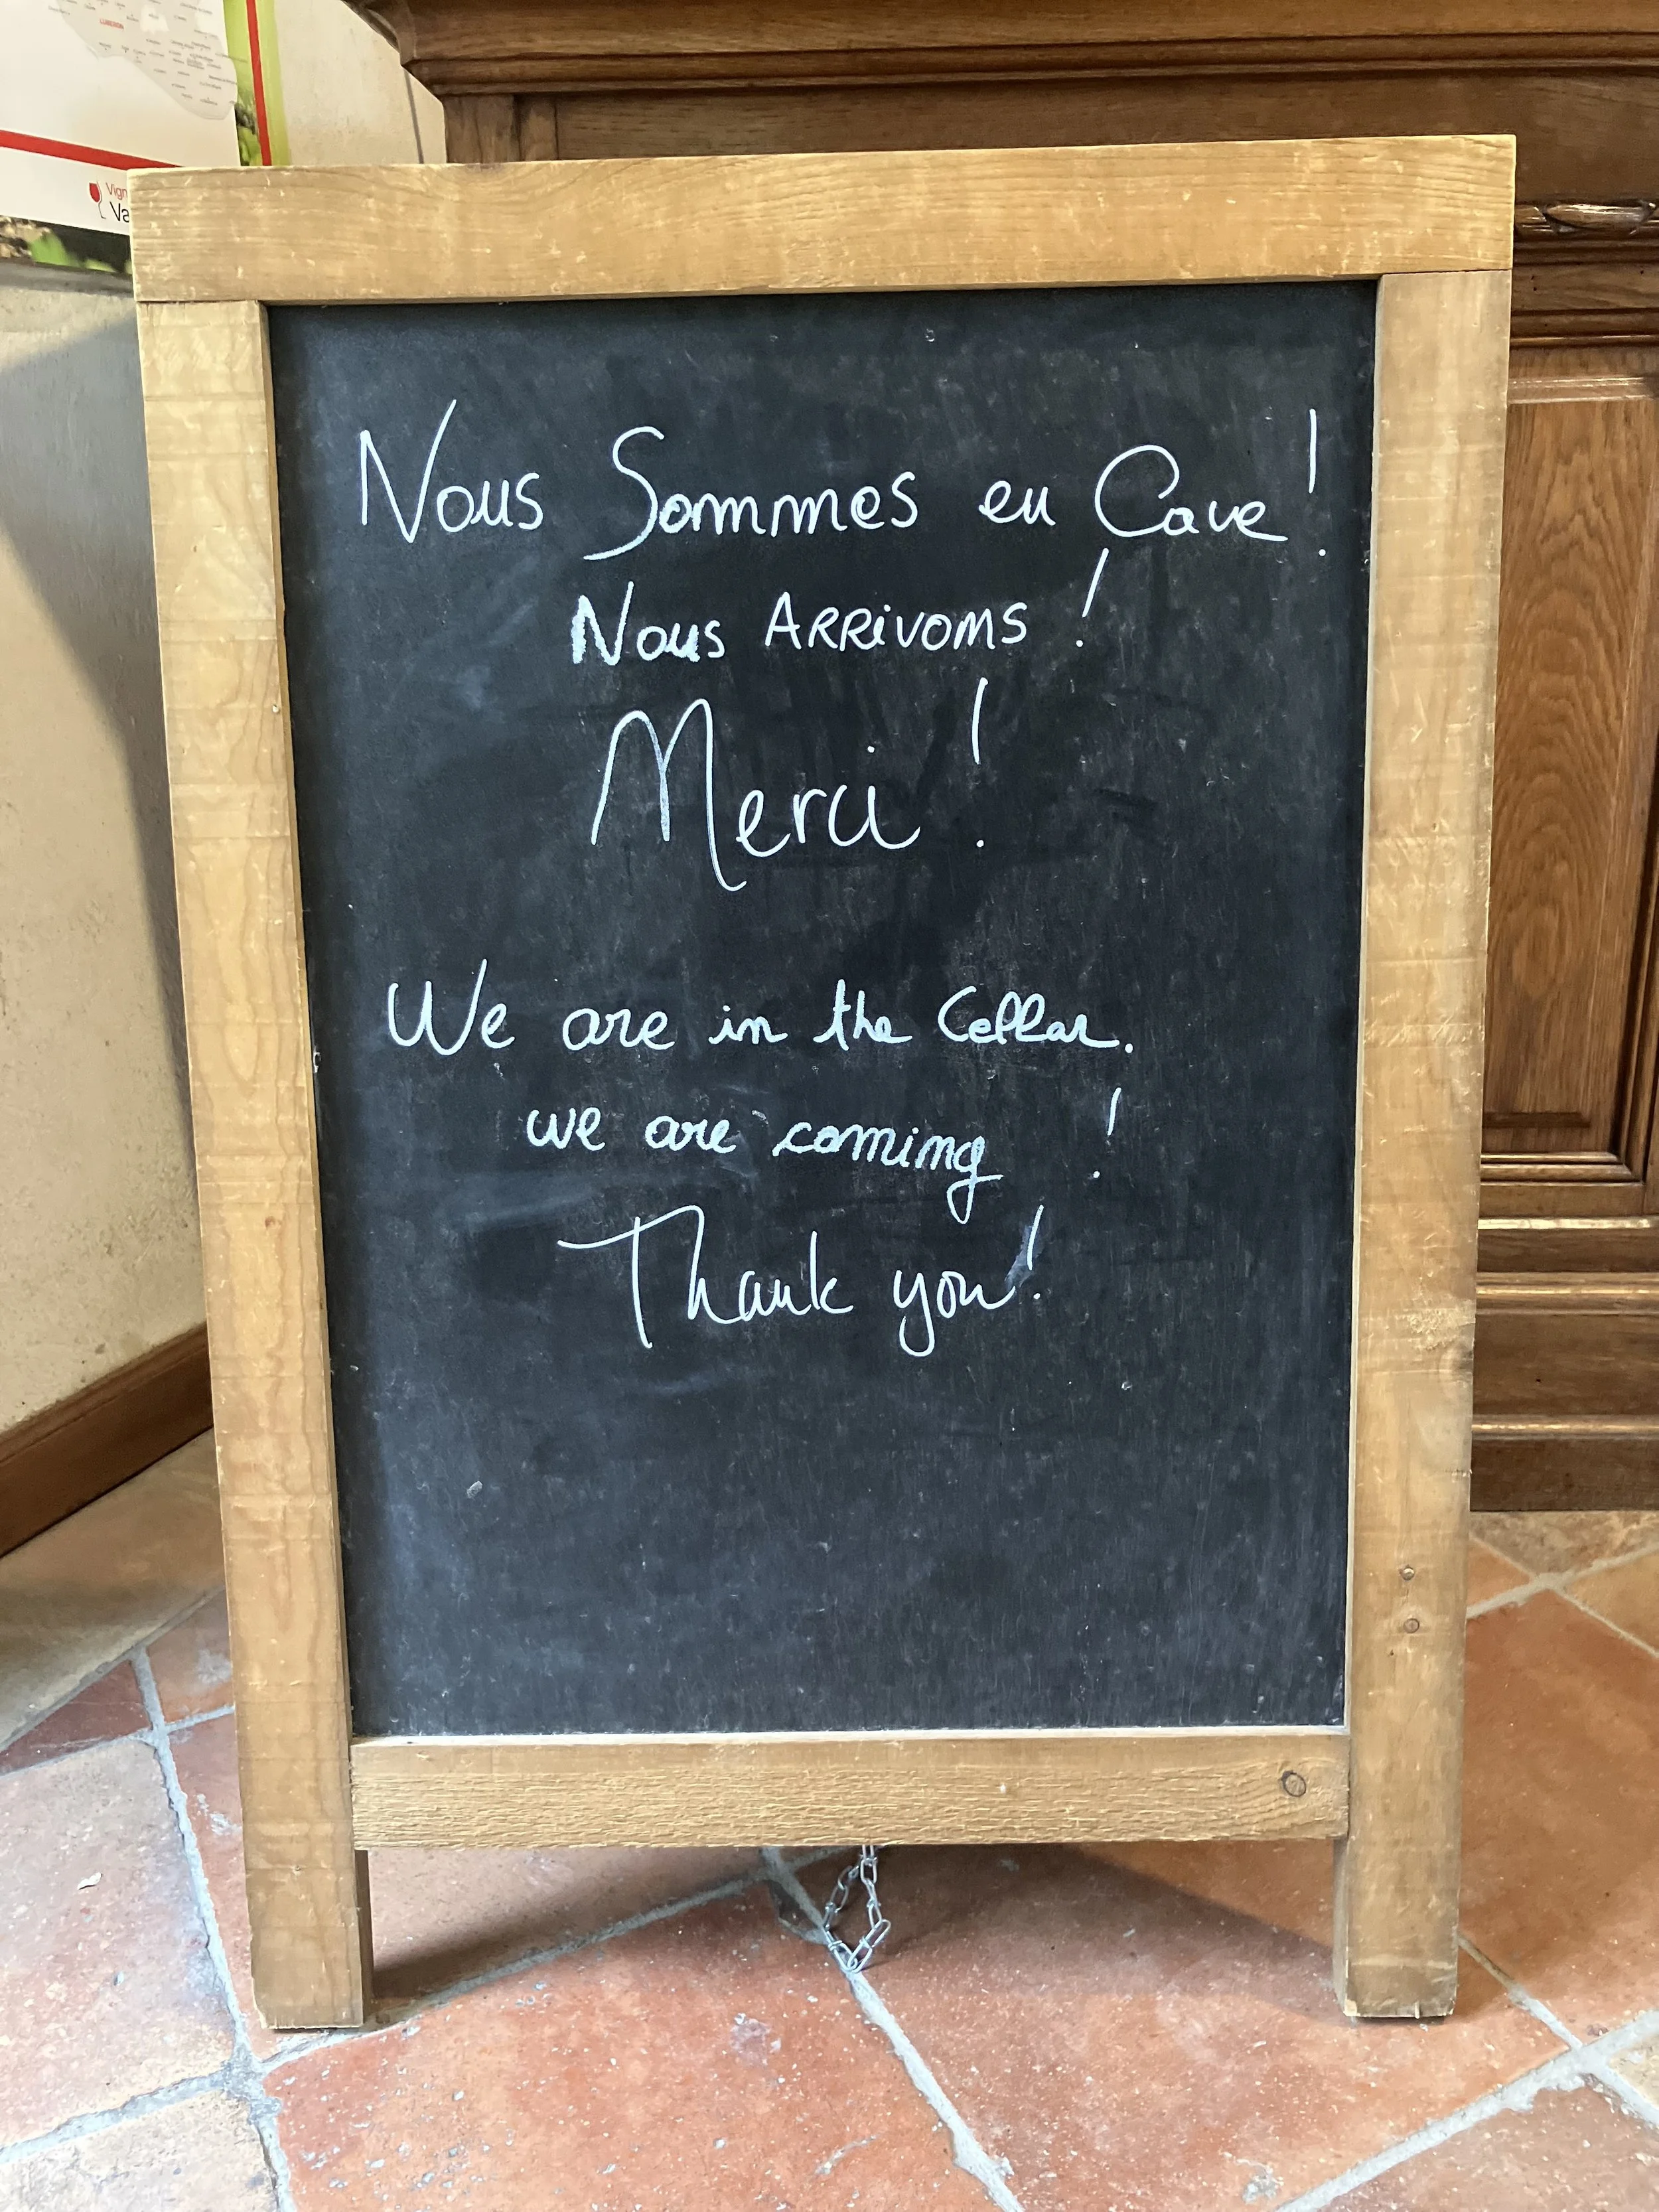 LUBERON
Vign
Va
Nous Sommes en Cave !
Nous ARRiVONS !
Merci !
We are in the Cellar.
we are coming !
Thank you !